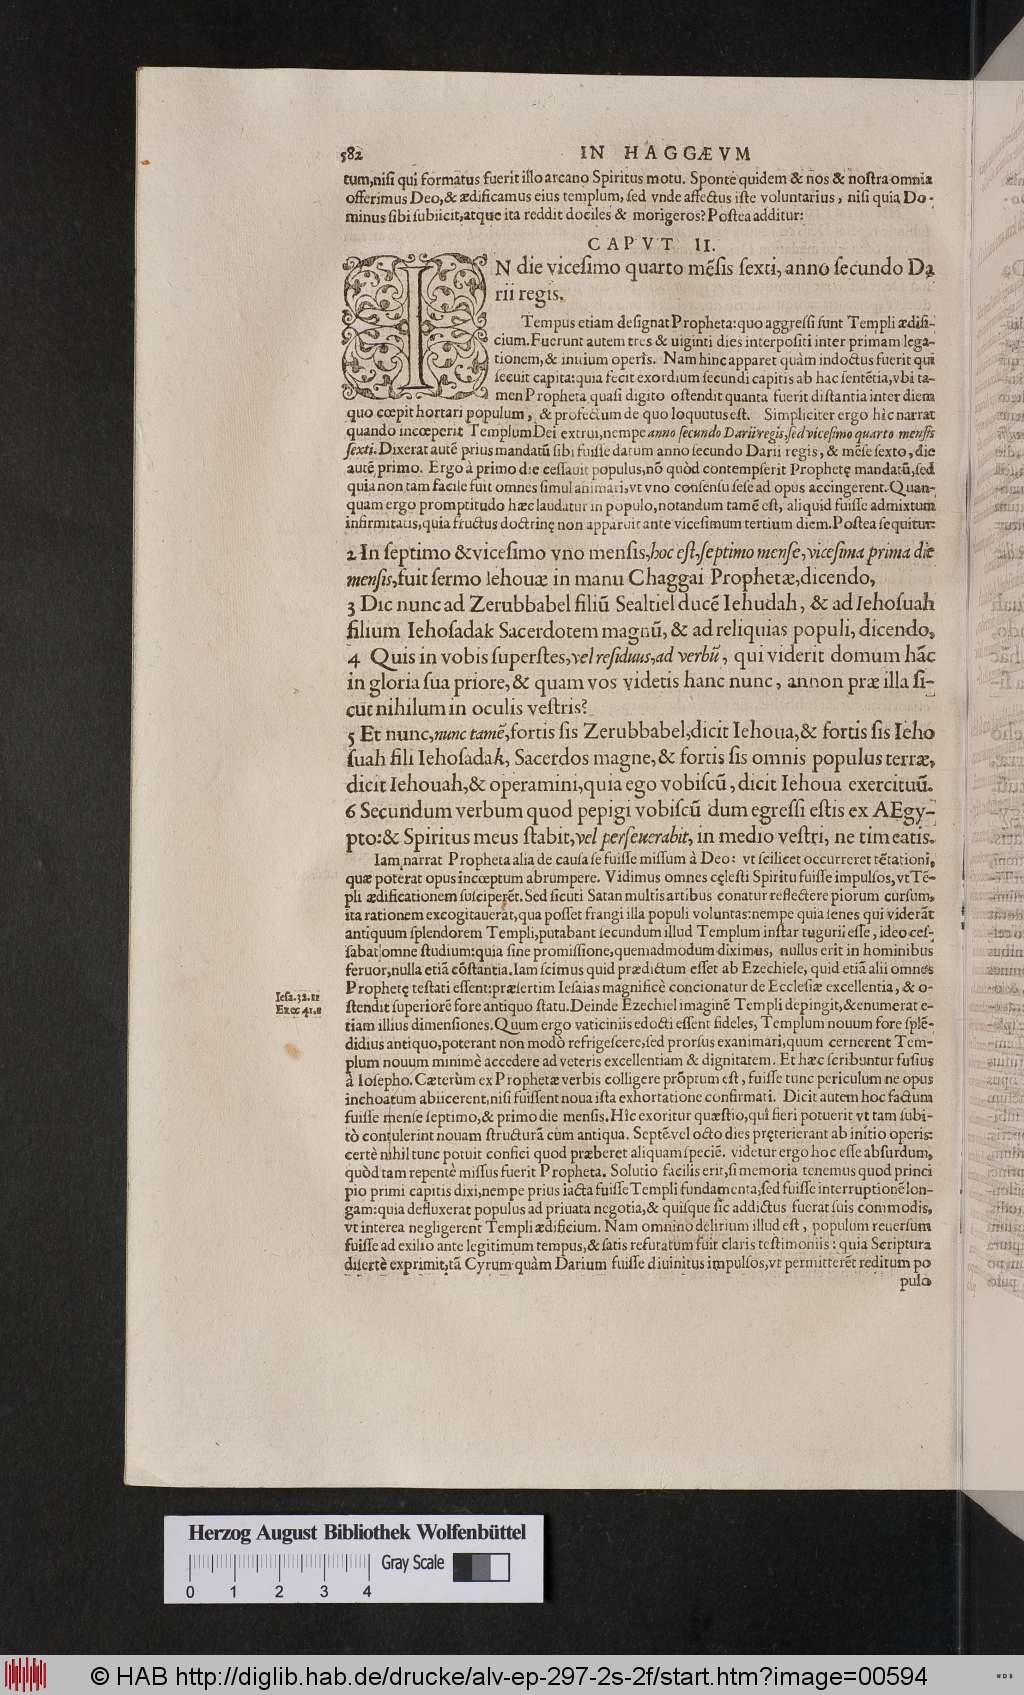 582 IN HAGGÆVM
tum,nisi qui formatus fuerit illo arcano Spiritus motu. Sponte quidem & nos & nostra omnia
offerimus Deo,& ædificamus eius templum, sed vnde affectus iste voluntarius, nisi quia Do-
minus sibi subiicit,atque ita reddit dociles & morigeros? Postea additur:
CAPVT II.
IN die vicesimo quarto mēsis sexti, anno secundo Da
rii regis.
Tempus etiam designat Propheta:quo aggressi sunt Templi ædifi-
cium. Fuerunt autem tres & uiginti dies interpositi inter primam lega-
tionem,& initium operis. Nam hinc apparet quàm indoctus fuerit qui
secuit capita:quia fecit exordium secundi capitis ab hac sentētia,vbi ta-
men Propheta quasi digito ostendit quanta fuerit distantia inter diem
quo cœpit hortari populum, & profectum de quo loquutus est. Simpliciter ergo hîc narrat
quando incœperit Templum Dei extrui,nempe anno secundo Darii regis,sed vicesimo quarto mensis
sexti. Dixerat autē prius mandatū sibi fuisse datum anno secundo Darii regis, & mēse sexto, die
autē primo. Ergo à primo die cessauit populus,nō quòd contempserit Prophetę mandatū,sed
quia non tam facile fuit omnes simul animari,vt vno consensu sese ad opus accingerent. Quan-
quam ergo promptitudo hæc laudatur in populo,notandum tamē est, aliquid fuisse admixtum
infirmitatis,quia fructus doctrinę non apparuit ante vicesimum tertium diem. Postea sequitur:
2 In septimo & vicesimo vno mensis,hoc est,septimo mense,vicesima prima die
mensis,fuit sermo Iehouæ in manu Chaggai Prophetæ,dicendo,
3 Dic nunc ad Zerubbabel filiū Sealtiel ducē Iehudah, & ad Iehosuah
filium Iehosadak Sacerdotem magnū, & ad reliquias populi, dicendo,
4 Quis in vobis superstes,vel residuus,ad verbū, qui viderit domum hāc
in gloria sua priore,& quam vos videtis hanc nunc, annon præ illa si-
cut nihilum in oculis vestris?
5 Et nunc,nunc tamē,fortis sis Zerubbabel,dicit Iehoua,& fortis sis Ieho
suah fili Iehosadak, Sacerdos magne,& fortis sis omnis populus terræ,
dicit Iehouah,& operamini,quia ego vobiscū, dicit Iehoua exercituū.
6 Secundum verbum quod pepigi vobiscū dum egressi estis ex AEgy-
pto:& Spiritus meus stabit,vel perseuerabit, in medio vestri, ne timeatis.
Iam narrat Propheta alia de causa se fuisse missum à Deo: vt scilicet occurreret tētationi,
quæ poterat opus incœptum abrumpere. Vidimus omnes cęlesti Spiritu fuisse impulsos,vt Tē-
pli ædificationem susciperēt. Sed sicuti Satan multis artibus conatur reflectere piorum cursum,
ita rationem excogitauerat,qua posset frangi illa populi voluntas:nempe quia senes qui viderāt
antiquum splendorem Templi,putabant secundum illud Templum instar tugurii esse, ideo ces-
sabat omne studium:quia sine promissione,quemadmodum diximus, nullus erit in hominibus
feruor,nulla etiā cōstantia. Iam scimus quid prædictum esset ab Ezechiele, quid etiā alii omnes
Prophetę testati essent:præsertim Iesaias magnificè concionatur de Ecclesiæ excellentia, & o-
stendit superiorē fore antiquo statu. Deinde Ezechiel imaginē Templi depingit,& enumerat e-
tiam illius dimensiones. Quum ergo vaticiniis edocti essent fideles, Templum nouum fore splē-
didius antiquo,poterant non modò refrigescere,sed prorsus exanimari,quum cernerent Tem-
plum nouum minimè accedere ad veteris excellentiam & dignitatem. Et hæc scribuntur fusius
à Iosepho. Cæterùm ex Prophetæ verbis colligere prōptum est, fuisse tunc periculum ne opus
inchoatum abiicerent,nisi fuissent noua ista exhortatione confirmati. Dicit autem hoc factum
fuisse mense septimo,& primo die mensis. Hîc exoritur quæstio,quî fieri potuerit vt tam subi-
tò contulerint nouam structurā cum antiqua. Septē vel octo dies pręterierant ab initio operis:
certè nihil tunc potuit confici quod præberet aliquam speciē. videtur ergo hoc esse absurdum,
quòd tam repentè missus fuerit Propheta. Solutio facilis erit,si memoria tenemus quod princi
pio primi capitis dixi,nempe prius iacta fuisse Templi fundamenta,sed fuisse interruptionē lon-
gam:quia defluxerat populus ad priuata negotia,& quisque sic addictus fuerat suis commodis,
vt interea negligerent Templi ædificium. Nam omnino delirium illud est, populum reuersum
fuisse ad exilio ante legitimum tempus,& satis refutatum fuit claris testimoniis: quia Scriptura
disertè exprimit,tā Cyrum quàm Darium fuisse diuinitus impulsos,vt permitterēt reditum po
pulo
Iesa.32.12
Ezec 41.8
Herzog August Bibliothek Wolfenbüttel
Gray Scale
0 1 2 3 4
© HAB http://diglib.hab.de/drucke/alv-ep-297-2s-2f/start.htm?image=00594